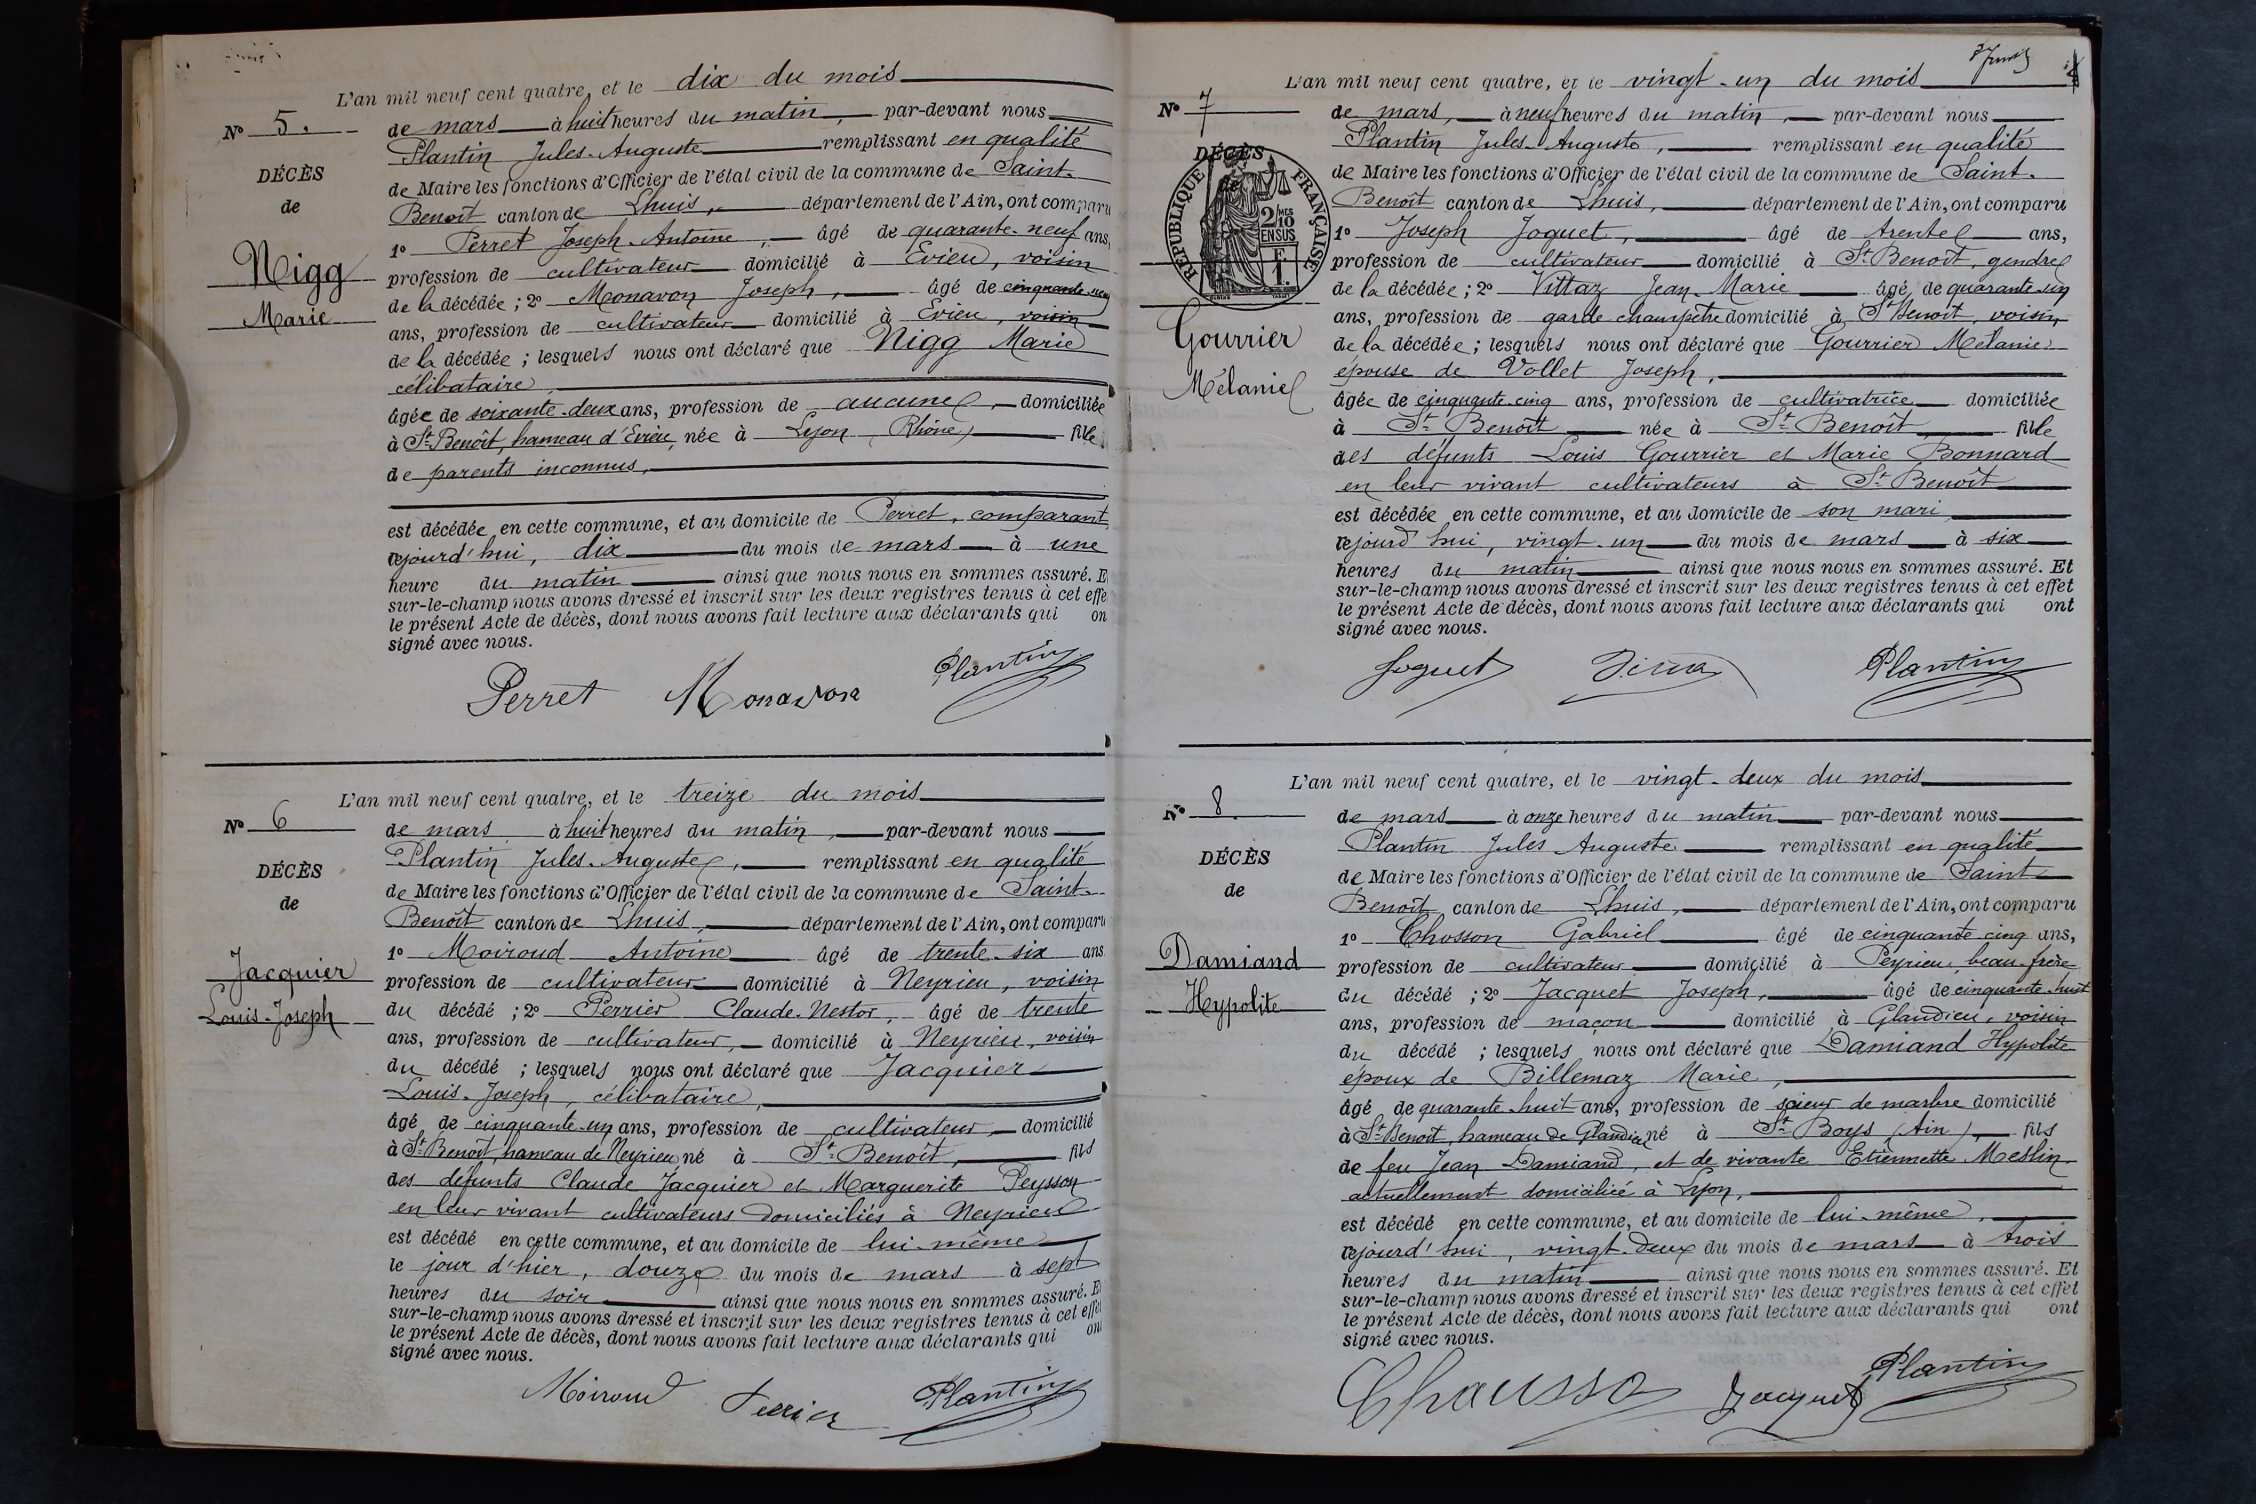 L'an mil neuf cent quatre, et le dix du mois
N° 5.
de mars à huit heures du matin, par-devant nous
Plantin Jules-Auguste remplissant en qualité
DÉCÈS
de Maire les fonctions d'Officier de l'état civil de la commune de Saint-
de
Benoît canton de Lhuis, département de l'Ain, ont comparu
1° Perret Joseph-Antoine, âgé de quarante-neuf ans,
Nigg
profession de cultivateur domicilié à Evieu, voisin
Marie
de la décédée; 2° Monavon Joseph, âgé de cinquante-neuf
ans, profession de cultivateur domicilié à Evieu, voisin
de la décédée; lesquels nous ont déclaré que Nigg Marie
célibataire
âgée de soixante-deux ans, profession de aucune, domiciliée
à St Benoît, hameau d'Evieu, née à Lyon (Rhône) fille
de parents inconnus,
est décédée en cette commune, et au domicile de Perret, comparant
cejourd'hui, dix du mois de mars à une
heure du matin ainsi que nous nous en sommes assuré. E
sur-le-champ nous avons dressé et inscrit sur les deux registres tenus à cet effe
le présent Acte de décès, dont nous avons fait lecture aux déclarants qui on
signé avec nous.
Perret Monavon Plantin
L'an mil neuf cent quatre, et le treize du mois
N° 6
de mars à huit heures du matin, par-devant nous
Plantin Jules-Auguste, remplissant en qualité
DÉCÈS
de Maire les fonctions d'Officier de l'état civil de la commune de Saint-
de
Benoît canton de Lhuis, département de l'Ain, ont comparu
1° Moiroud Antoine âgé de trente-six ans
Jacquier
profession de cultivateur domicilié à Neyrieu, voisin
Louis-Joseph
du décédé; 2° Perrier Claude-Nestor, âgé de trente
ans, profession de cultivateur, domicilié à Neyrieu, voisin
du décédé; lesquels nous ont déclaré que Jacquier
Louis-Joseph, célibataire,
âgé de cinquante-un ans, profession de cultivateur, domicilié
à St Benoît, hameau de Neyrieu né à St Benoît, fils
des défunts Claude Jacquier et Marguerite Peysson
en leur vivant cultivateurs domiciliés à Neyrieu
est décédé en cette commune, et au domicile de lui-même
le jour d'hier, douze du mois de mars à sept
heures du soir ainsi que nous nous en sommes assuré. Et
sur-le-champ nous avons dressé et inscrit sur les deux registres tenus à cet effet
le présent Acte de décès, dont nous avons fait lecture aux déclarants qui ont
signé avec nous.
Moiroud Perrier Plantin
L'an mil neuf cent quatre, et le vingt-un du mois
N° 7
de mars, à neuf heures du matin, par-devant nous
Plantin Jules Auguste, remplissant en qualité
DÉCÈS
de
RÉPUBLIQUE FRANÇAISE
2/10 MES EN SUS
de Maire les fonctions d'Officier de l'état civil de la commune de Saint-
Benoît canton de Lhuis, département de l'Ain, ont comparu
1° Joseph Joguet, âgé de trente ans,
profession de cultivateur domicilié à St Benoît, gendre
de la décédée; 2° Vittaz Jean-Marie âgé de quarante-un
ans, profession de garde champêtre domicilié à St Benoît, voisin
Gourrier
de la décédée; lesquels nous ont déclaré que Gourrier Mélanie
Mélanie
épouse de Vollet Joseph,
âgée de cinquante-cinq ans, profession de cultivatrice domiciliée
à St Benoît née à St Benoît fille
des défunts Louis Gourrier et Marie Bonnard
en leur vivant cultivateurs à St Benoît
est décédée en cette commune, et au domicile de son mari
cejourd'hui, vingt-un du mois de mars à six
heures du matin ainsi que nous nous en sommes assuré. Et
sur-le-champ nous avons dressé et inscrit sur les deux registres tenus à cet effet
le présent Acte de décès, dont nous avons fait lecture aux déclarants qui ont
signé avec nous.
Joguet Plantin
L'an mil neuf cent quatre, et le vingt-deux du mois
N° 8.
de mars à onze heures du matin par-devant nous
Plantin Jules Auguste remplissant en qualité
DÉCÈS
de Maire les fonctions d'Officier de l'état civil de la commune de Saint-
de
Benoît canton de Lhuis, département de l'Ain, ont comparu
1° Chosson Gabriel âgé de cinquante cinq ans,
Damiand
profession de cultivateur domicilié à Peyrieu, beau-frère
Hypolite
du décédé; 2° Jacquet Joseph, âgé de cinquante-huit
ans, profession de maçon domicilié à Glandieu, voisin
du décédé; lesquels nous ont déclaré que Damiand Hypolite
époux de Billemaz Marie,
âgé de quarante-huit ans, profession de scieur de marbre domicilié
à St Benoît, hameau de Glandieu né à St Boys (Ain), fils
de feu Jean Damiand, et de vivante Etiennette Meslin
actuellement domicilié à Lyon,
est décédé en cette commune, et au domicile de lui-même,
cejourd'hui, vingt-deux du mois de mars à trois
heures du matin ainsi que nous nous en sommes assuré. Et
sur-le-champ nous avons dressé et inscrit sur les deux registres tenus à cet effet
le présent Acte de décès, dont nous avons fait lecture aux déclarants qui ont
signé avec nous.
Chausso Jacquet Plantin